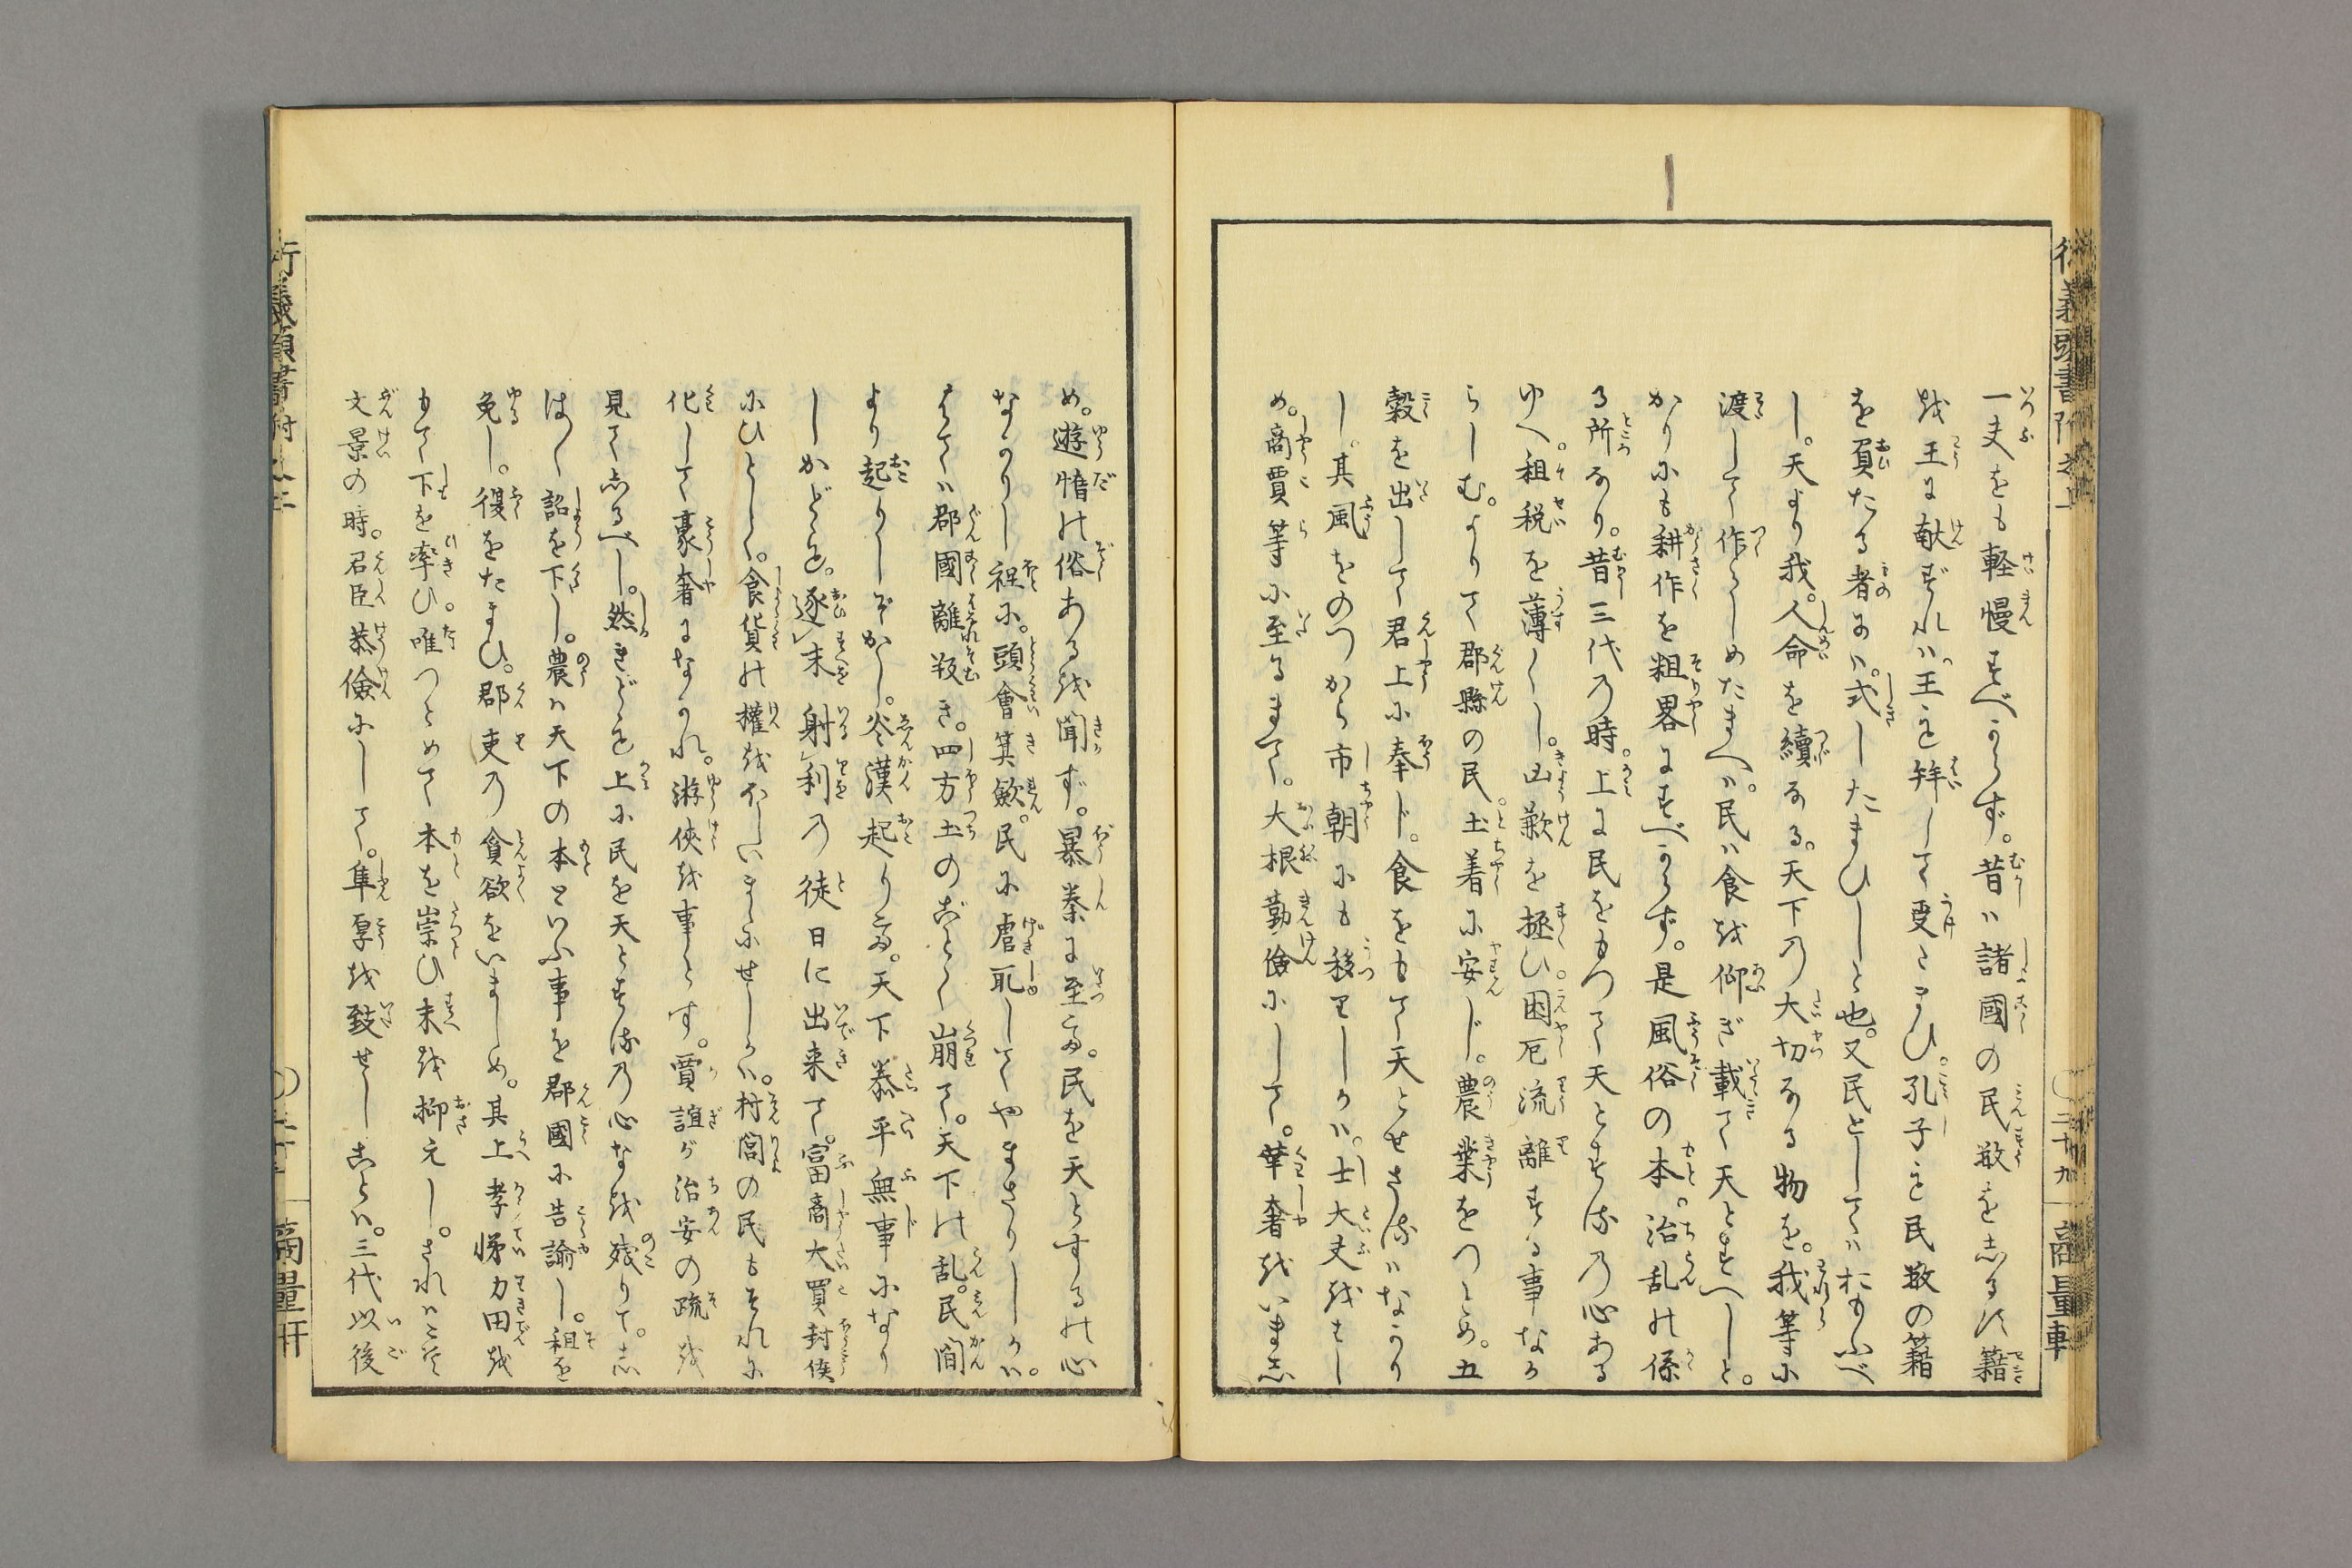 一夫をも軽慢すべからず。昔ハ諸國の民数をしるす籍
を王に献ずれハ。王も拝して受たまひ。孔子も民数の籍
を負たる者にハ。式したまひしと也。又民としてハおもふべ
し。天より我。人命を續なる。天下の大切なる物を。我等に
渡して作らしめたまへハ。民ハ食を仰ぎ載て天とすへしと。
かりにも耕作を粗畧にすべからず。是風俗の本。治乱の係
る所なり。昔三代の時。上に民をもつて天とする乃心ある
ゆへ。祖税を薄くし。凶歉を拯ひ。困厄流離する事なか
らしむ。よりて郡縣の民。土着に安んじ。農業をつとめ。五
穀を出して君上に奉ず。食をもて天とせざるハなかり
し。其風をのつから市朝にも移りしかハ。士大夫をはし
め。商賈等に至るまで。大根勤儉にして。華奢をいまし
め。遊惰の俗あるを聞ず。暴秦に至る。民を天とするの心
なかりし祖に。頭會箕歛。民に虐

してやまさりしかハ。
はてハ郡國離叛き。四方土のごとく崩て。天下の乱。民間
より起りしぞかし。炎漢起りて。天下泰平無事になり
しかども。逐末射利の徒日に出来て。富商大買封侯
にひとしく。食貨の權を

村閭の民もそれに
化して豪奢になかれ。游侠を事とす。賈誼が治安の疏を
見てしるべし。然れども上に民を天とする乃心なを残りて。し
ばく詔を下し。農ハ天下の本といふ事を郡國に告諭し。祖を
免し。復をたまひ。郡吏の貪欲をいましめ。其上孝悌力田を
もて下を率ひ。唯つとめて本を崇ひ末を抑えし。されハこそ
文景の時。君臣恭儉にして。隼厚を致せしことハ。三代以後